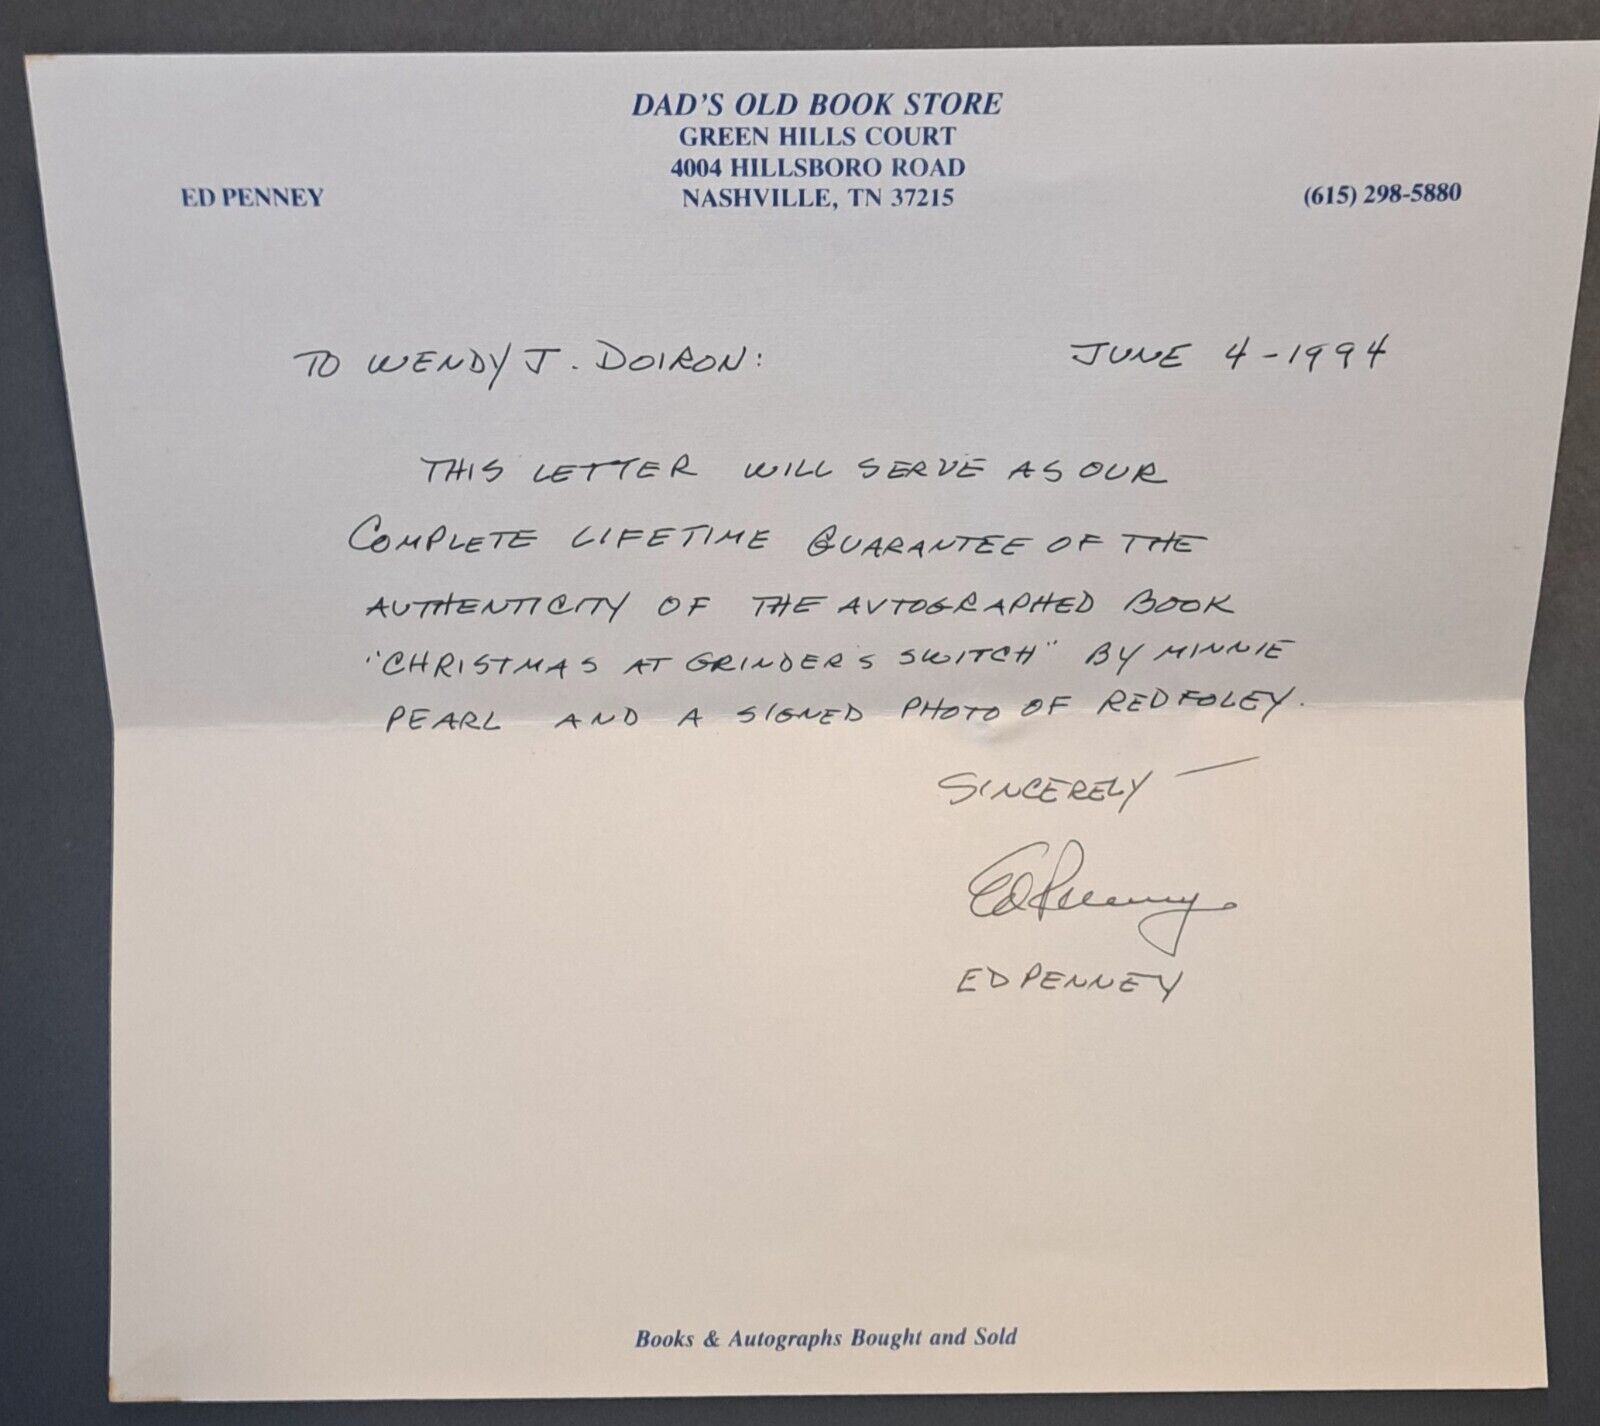 DAD'S OLD BOOK STORE
GREEN HILLS COURT
4004 HILLSBORO ROAD
ED PENNEY NASHVILLE, TN 37215 (615) 298-5880
TO WENDY J. DOIRON: JUNE 4-1994
THIS LETTER WILL SERVE AS OUR
COMPLETE LIFETIME GUARANTEE OF THE
AUTHENTICITY OF THE AUTOGRAPHED BOOK
"CHRISTMAS AT GRINDER'S SWITCH" BY MINNIE
PEARL AND A SIGNED PHOTO OF RED FOLEY.
SINCERELY —
Ed Penney
ED PENNEY
Books & Autographs Bought and Sold